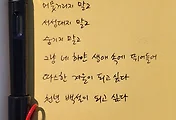 머뭇거리지 말고
서성대지 말고
숨기지 말고
그냥 네 하얀 생애 속에 뛰어들어
따스한 겨울이 되고 싶다
천년 백설이 되고 싶다